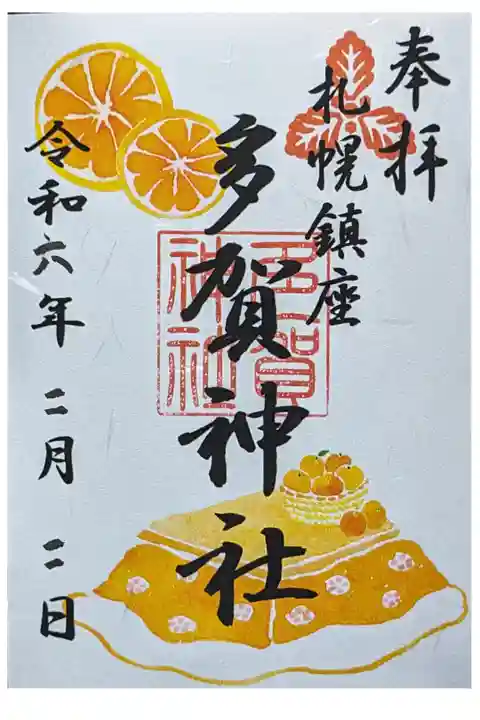 奉拝
札幌鎮座
多賀神社
多賀神社
令和六年 二月 二日